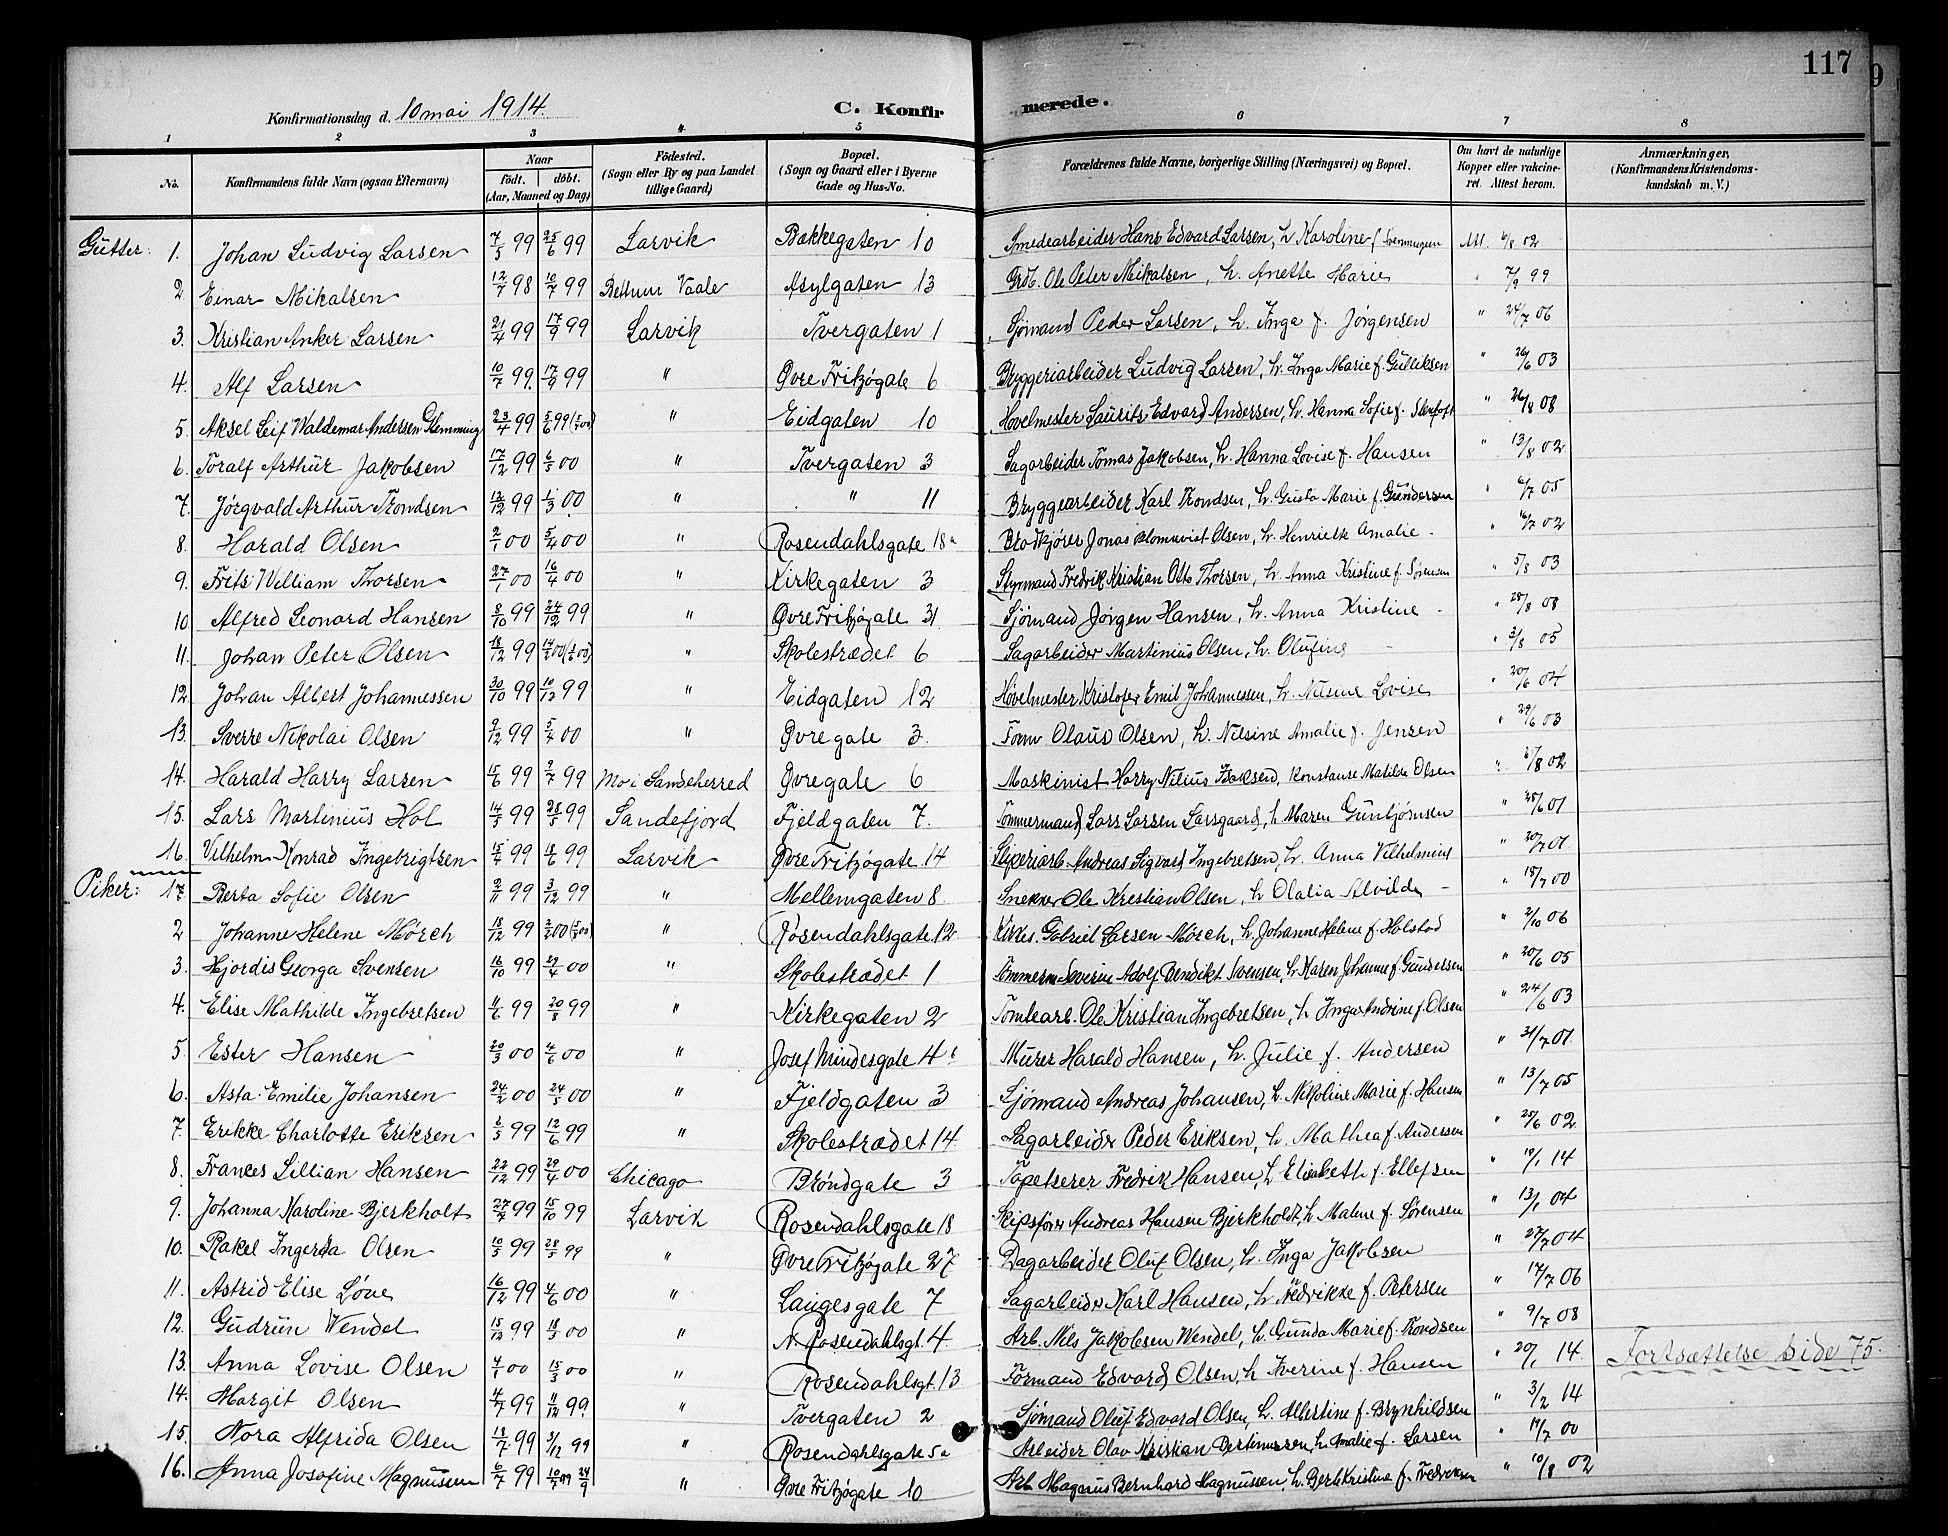 117
9
Konfirmationsdag d. 10 mai 1914. C. Konfirmerede.
1 2 3 4 5 6 7 8
No. Konfirmandens fulde Navn (ogsaa Efternavn) Naar født. døbt. (Aar, Maaned og Dag) Fødested. (Sogn eller By og paa Landet tillige Gaard) Bopæl. (Sogn og Gaard eller i Byerne Gade og Hus-No. Forældrenes fulde Navne, borgerlige Stilling (Næringsvei) og Bopæl. Om havt de naturlige Kopper eller vakcineret. Attest herom. Anmærkninger, (Konfirmandens Kristendomskundskab m. V.)
Gutter: 1. Johan Ludvig Larsen 7/5 99 25/6 99 Larvik Bakkegaten 10 Smedearbeider Hans Edvard Larsen, h. Karoline f. Svenningsen Att. 6/8 02
2 Einar Mikalsen 12/7 98 10/7 99 Vaale Asylgaten 13 Ole Peter Mikalsen, h. Anette Marie " 7/9 99
3. Kristian Anker Larsen 21/4 99 17/9 99 Larvik Tvergaten 1 Sjømand Peder Larsen, h. Inga f. Jørgensen " 24/7 06
4. Alf Larsen 10/7 99. 17/9 99 " Øvre Fritzøgate 6 Bryggeriarbeider Ludvig Larsen, h. Inga Marie f. Gulliksen " 26/6 03
5. Aksel Leif Waldemar Andersen Flemming 23/4 99 5/6 99 " Eidgaten 10 Høvelmester Laurits Edvard Andersen, h. Hanna Sofie f. Stenfoft " 26/8 08
6. Toralf Arthur Jakobsen 17/12 99 6/5 00 " Tvergaten 3 Sagarbeider Tomas Jakobsen, h. Hanna Lovise f. Hansen " 13/8 02
7. Jørgvald Arthur Trondsen 12/12 99 1/3 00 " " 11 Bryggearbeider Karl Trondsen, h. Gusta Marie f. Gundersen " 6/7 05
8. Harald Olsen 2/1 00 5/4 00 " Rosendahlsgate 18a Brødkjører Jonas Blomqvist Olsen, h. Henriette Amalie - " 16/7 02
9. Frits William Thorsen 27/1 00 16/4 00 " Kirkegaten 3 Styrmand Fredrik Kristian Otto Thorsen, h. Anna Kristine f. Sørensen " 5/8 03
10. Alfred Leonard Hansen 8/10 99 24/12 99 " Øvre Fritzøgate 31 Sjømand Jørgen Hansen, h. Anna Kristine - " 28/8 08
11. Johan Peter Olsen 18/12 99 " Skolestrædet 6 Sagarbeider Martinius Olsen, h. Olufine - " 3/8 05
12. Johan Albert Johannessen 30/10 99 10/12 99 " Eidgaten 12 Høvelmester Kristofer Emil Johannessen, h. Nilsine Lovise " 20/6 04
13. Sverre Nikolai Olsen 9/12 99 5/4 00 " Øvregate 3. Form Olaus Olsen, h. Nilsine Amalie f. Jensen " 29/6 03
14. Harald Harry Larsen 15/6 99 9/7 99 Mo i Sandeherred Øvregate 6 Maskinist Harry Nilius Isaksen, Konstanse Matilde Olsen " 6/8 02
15. Lars Martinius Hol 14/3 99 28/5 99 Sandefjord Fjeldgaten 7. Tømmermand Lars Larsen Larsgaard, h Maren Gunbjørnsen " 25/6 01
16. Vilhelm Konrad Ingebrigtsen 15/4 99 18/6 99 Larvik Øvre Fritzøgate 14 Sliperiarb. Andreas Sigvard Ingebretsen, h. Anna Vilhelmine " 20/7 01
Piker: 17. Berta Sofie Olsen 2/11 99 3/12 99 " Mellemgaten 8. Snekker Ole Kristian Olsen, h Olalia Alvilde - " 18/7 00
2 Johanne Helene Mørch 18/12 99 " Rosendahlsgate 12 Gabriel Larsen Mørch, h. Johanne Helene f. Holstad " 2/10 06
3. Hjørdis Georga Svensen 16/10 99 29/4 00 " Skolestrædet 1 Tømmerm Severin Adolf Bendikt Svensen, h Karen Johanne f. Gundersen " 20/6 05
4. Elise Mathilde Ingebretsen 11/6 99 20/8 99 " Kirkegaten 2 Tomtearb. Ole Kristian Ingebretsen, h Inga Andrine f. Olsen " 24/6 03
5. Ester Hansen 20/3 00 4/6 00 " Josef Mindesgate 4 Murer Harald Hansen, h. Julie f. Andersen " 31/7 01
6. Asta Emilie Johansen 24/2 00 24/5 00 " Fjeldgaten 3 Sjømand Andreas Johansen, h. Nikoline Marie f. Hansen " 13/7 05
7. Erikke Charlotte Eriksen 6/5 99 12/6 99 " Skolestrædet 14. Sagarbeider Peder Eriksen, h Mathea f. Andersen " 25/6 02
8. Frances Lillian Hansen 22/12 99 29/4 00 Chicago Brøndgate 3 Tapetserer Fredrik Hansen, h Elisabeth f. Ellefsen " 19/1 14
9. Johanna Karoline Bjerkholt 27/7 99 15/10 99 Larvik Rosendahlsgate 18 Skipsfører Andreas Hansen Bjerkholdt, h Malene f. Sørensen " 13/1 04
10. Rakel Ingerda Olsen 10/5 99 28/5 99 " Øvre Fritzøgate 27 Dagarbeider Oluf Olsen, h. Inga Jakobsen " 27/7 04
11. Astrid Elise Løve 16/12 99 4/6 00 " Langesgate 7 Sagarbeider Karl Hansen, h Fredrikke f. Petersen " 17/7 06
12. Gudrun Wendel 15/12 99 18/3 00 " N. Rosendahlsgt. 4 Arb. Nils Jakobsen Wendel, h. Gunda Marie f. Trondsen " 9/7 08
13. Anna Lovise Olsen 4/1 00 15/3 00 " Rosendahlsgt. 13 Formand Edvard Olsen, h Iverine f. Hansen " 29/1 14. Fortsættelse side 75.
14. Margit Olsen 4/7 99 11/12 99. " Tvergaten 2 Sjømand Oluf Edvard Olsen, h. Albertine f. Brynhildsen " 3/2 14
15. Nora Alfrida Olsen 18/7 99 3/12 99 " Rosendahlsgate 5a Arbeider Olav Kristian Bertinussen, h. Amalie f. Larsen " 17/7 00
16. Anna Josefine Magnussen 6/7 99 " Øvre Fritzøgate 10 Arb Magnus Bernhard Magnussen, h. Bert Kristine f. Fredriksen " 10/8 02